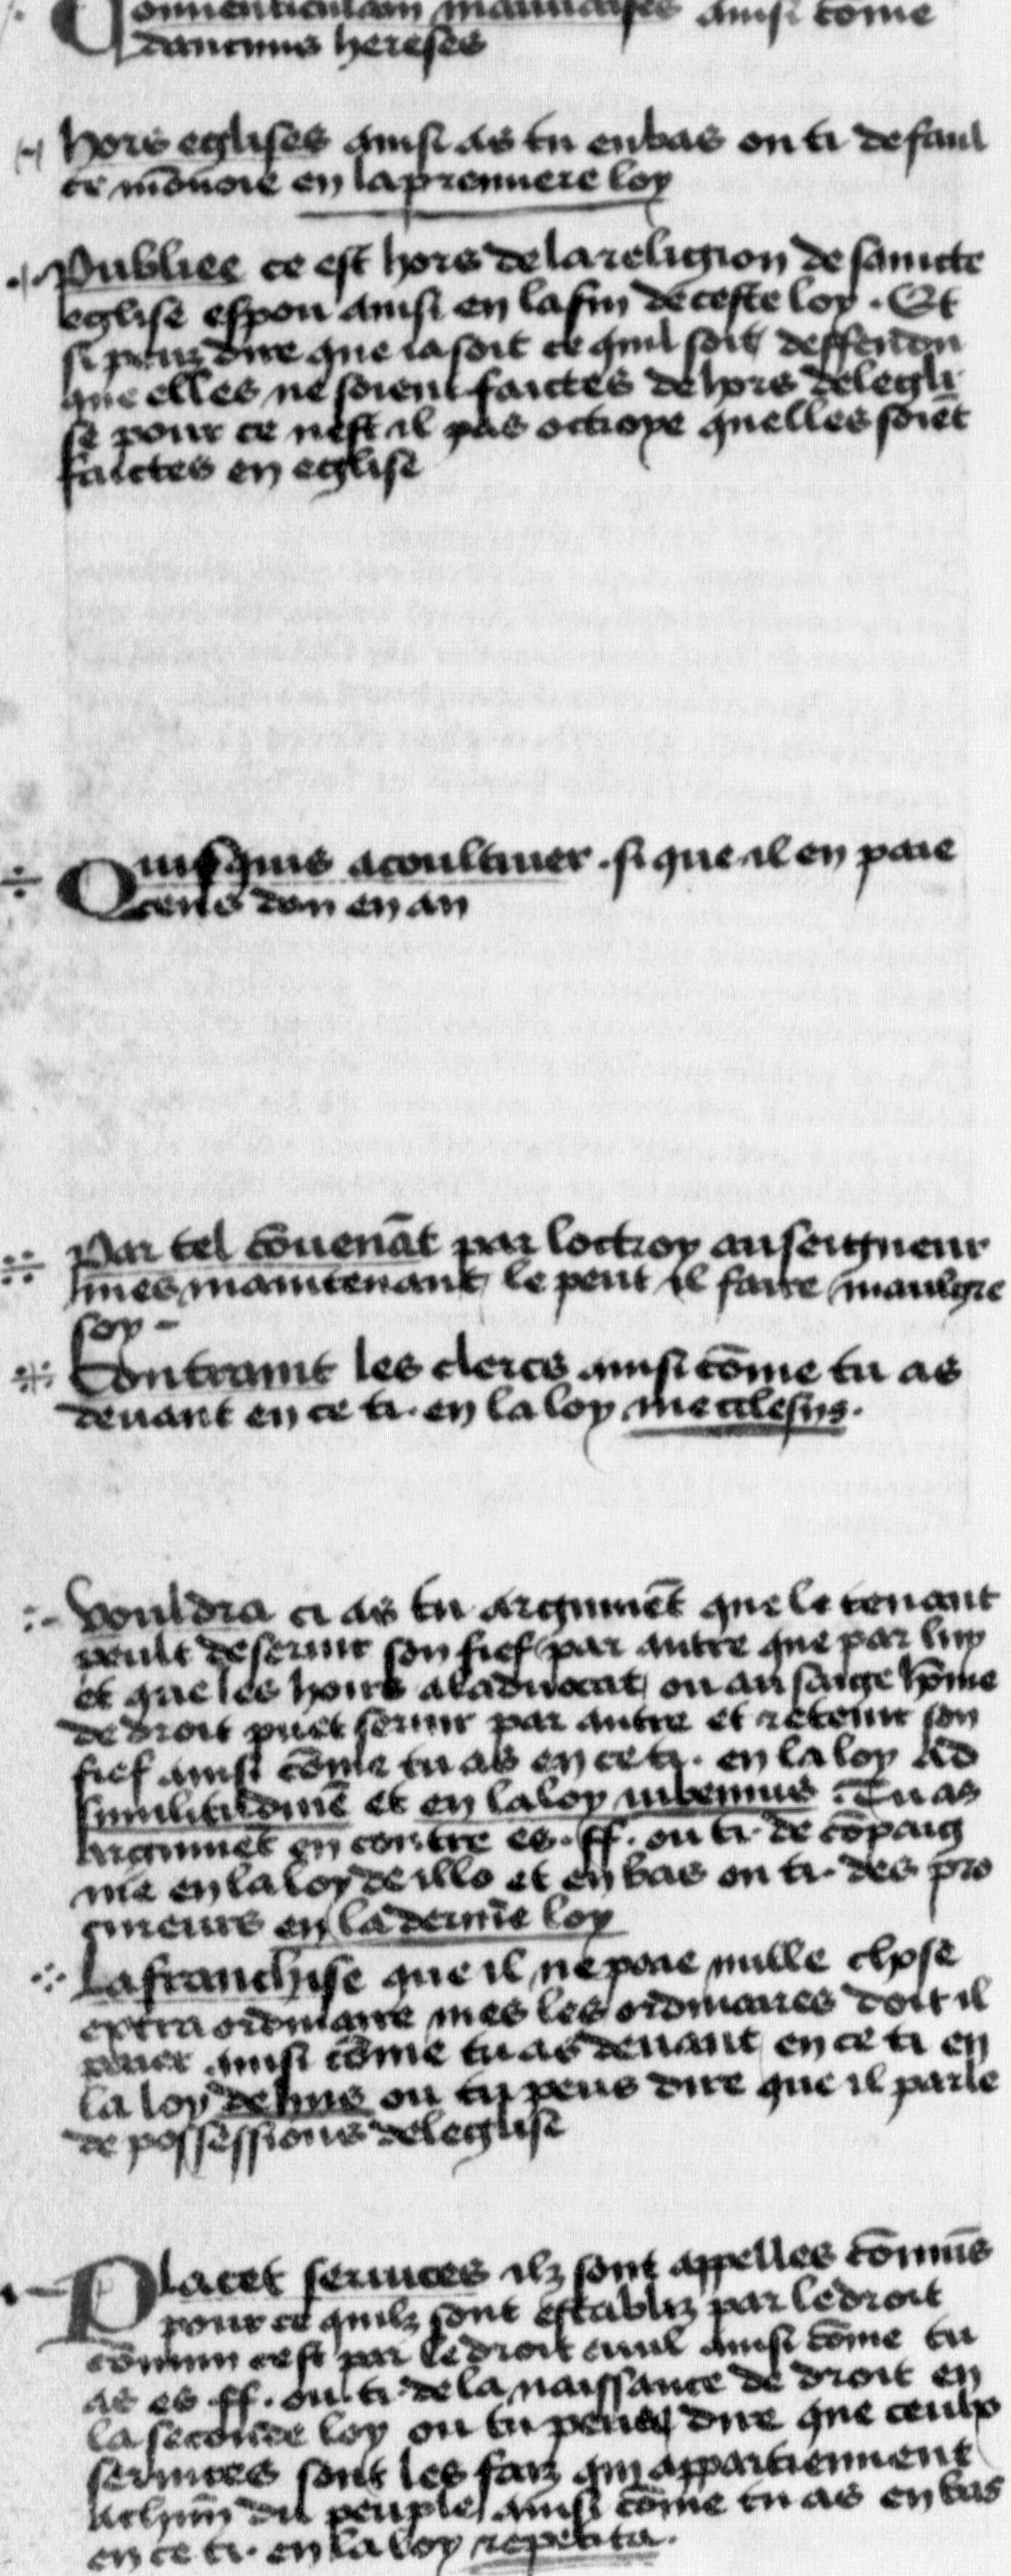 Conuenticulam mauuaises ainsi cōme
daucuns hereses
hors eglises ainsi as tu enbas ou ti de faul
ce mōnoie en la premiere loy
Publiee ce est hors de la religion de saincte
eglise espou ainsi en la fin de ceste loy . Et
si peuz dire que ia soit ce quil soit deffendu
que elles ne soient faictes de hors de legli
se pour ce nest il pas octroye quelles soiēt
faictes en eglise
Quisquis a coultiuer . si que il en paie
cens dan en an
Par tel cōuenāt par loctroy au seigneur
mes maintenant le peut il faire maulgre
soy
Contraint les clercs ainsi cōme tu as
deuant en ce ti. en la loy
Vouldra ci as tu argumēt que le tenant
peult deseruir son fief par autre que par luy
et que les hoirs a laduocat ou au saige hōme
de droit puet seruir par autre et retenir son
fief ainsi cōme tu as en ce ti. en la loy Ad
similitudinē et en la loy iubemus . Tu as
argumēt en contre es . ff. ou ti. de cōpaig
nie en la loy de illo et en bas ou ti. des pro
cureurs en la derniē loy
La franchise que il ne paie nulle chose
extraordinaire mes les ordinaires doit il
paier ainsi cōme tu as deuant en ce ti en
la loy de hiis ou tu peus dire que il parle
de possessions de leglise
Placet seruices ilz sont appelles cōmūs
pour ce quilz sont establiz par le droit
cōmun cest par le droit ciuil ainsi cōme tu
as es ff. ou ti. de la naissance de droit en
la seconde loy ou tu peus dire que ceulx
seruices sont les faiz qui appartiennent
a chūn du peuple ainsi cōme tu as en bas
en ce ti. en la loy repetita.